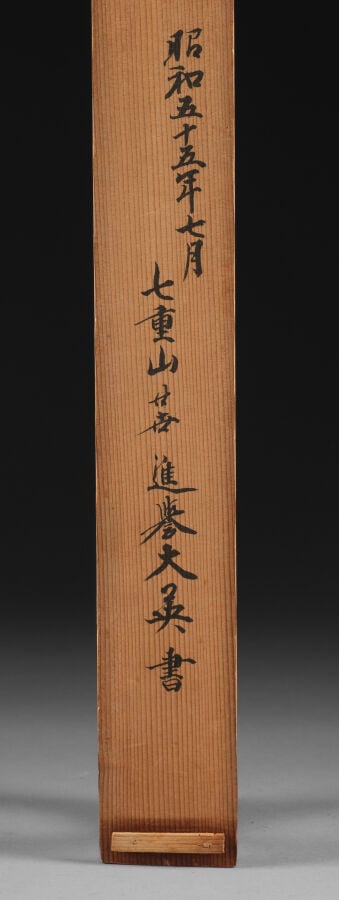 昭和五十五年七月
七重山廿世進譽大英書